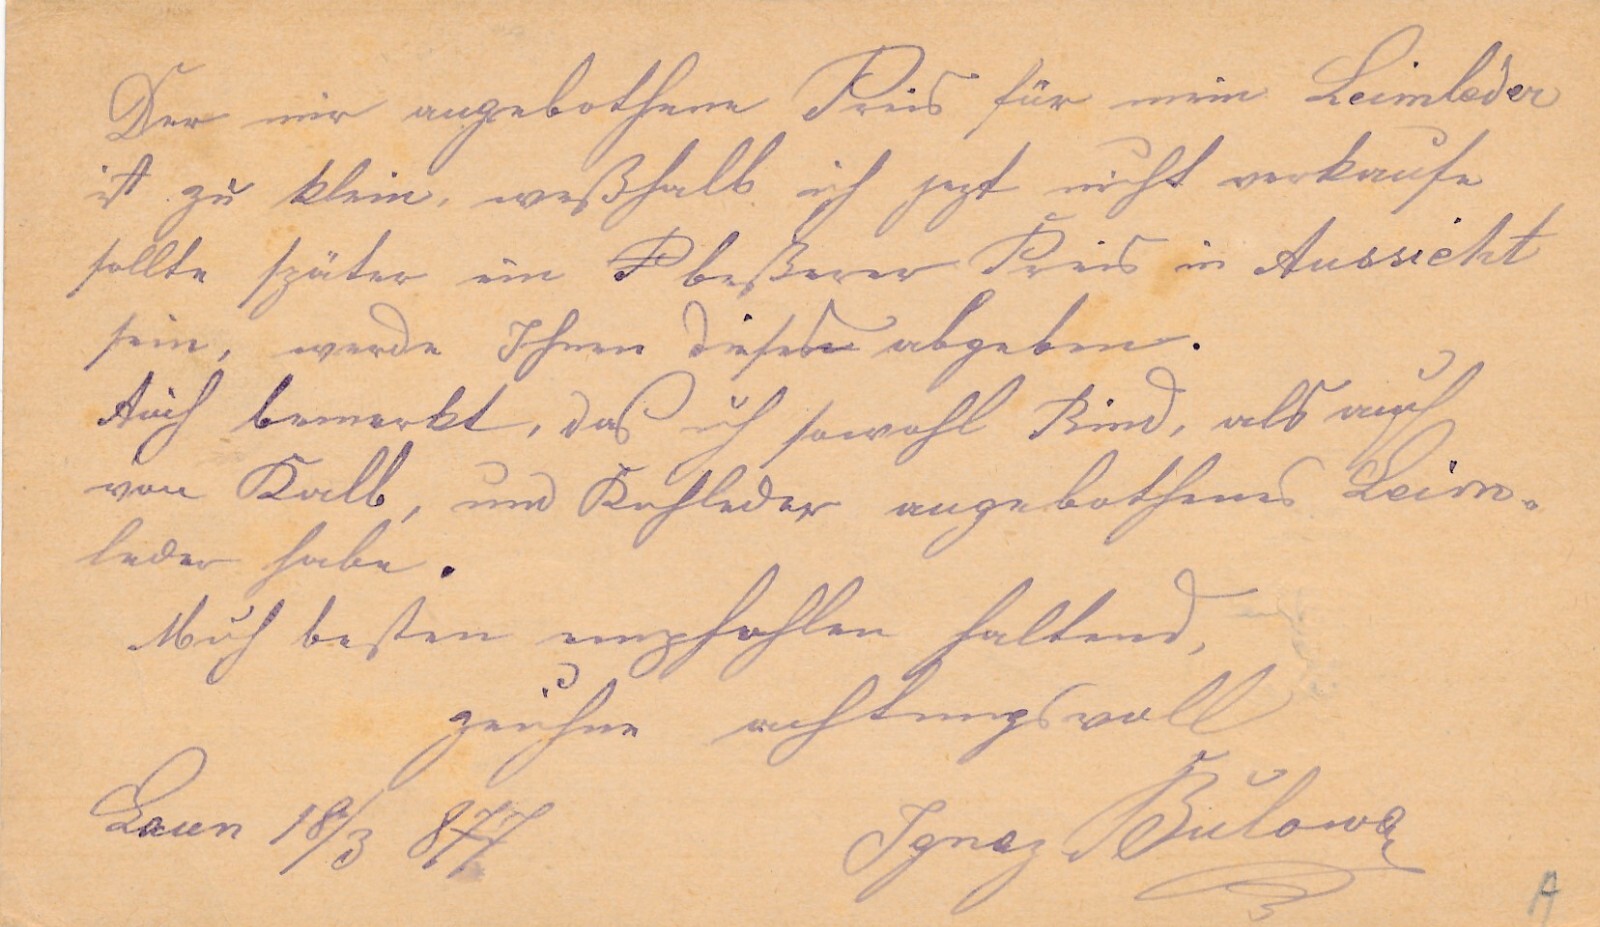 Der mir angebothene Preis für mein Leimleder
ist zu klein, weßhalb ich jezt nicht verkaufe
sollte später ein P beßerer Preis in Aussicht
sein, werde Ihnen diesen abgeben.
Auch bemerkt, das ich sowohl Rind, als auch
von Kalb, und Kuhleder angebothenes Leim-
leder habe.
Mich besten empfohlen haltend,
zeichne achtungsvoll
Laun 18/3 877
Ignaz Bulowa
A